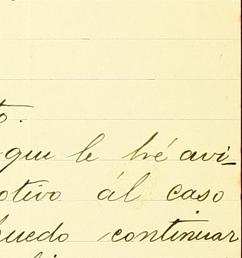 o.
que le hé avi-
otivo ál caso
puedo continuar